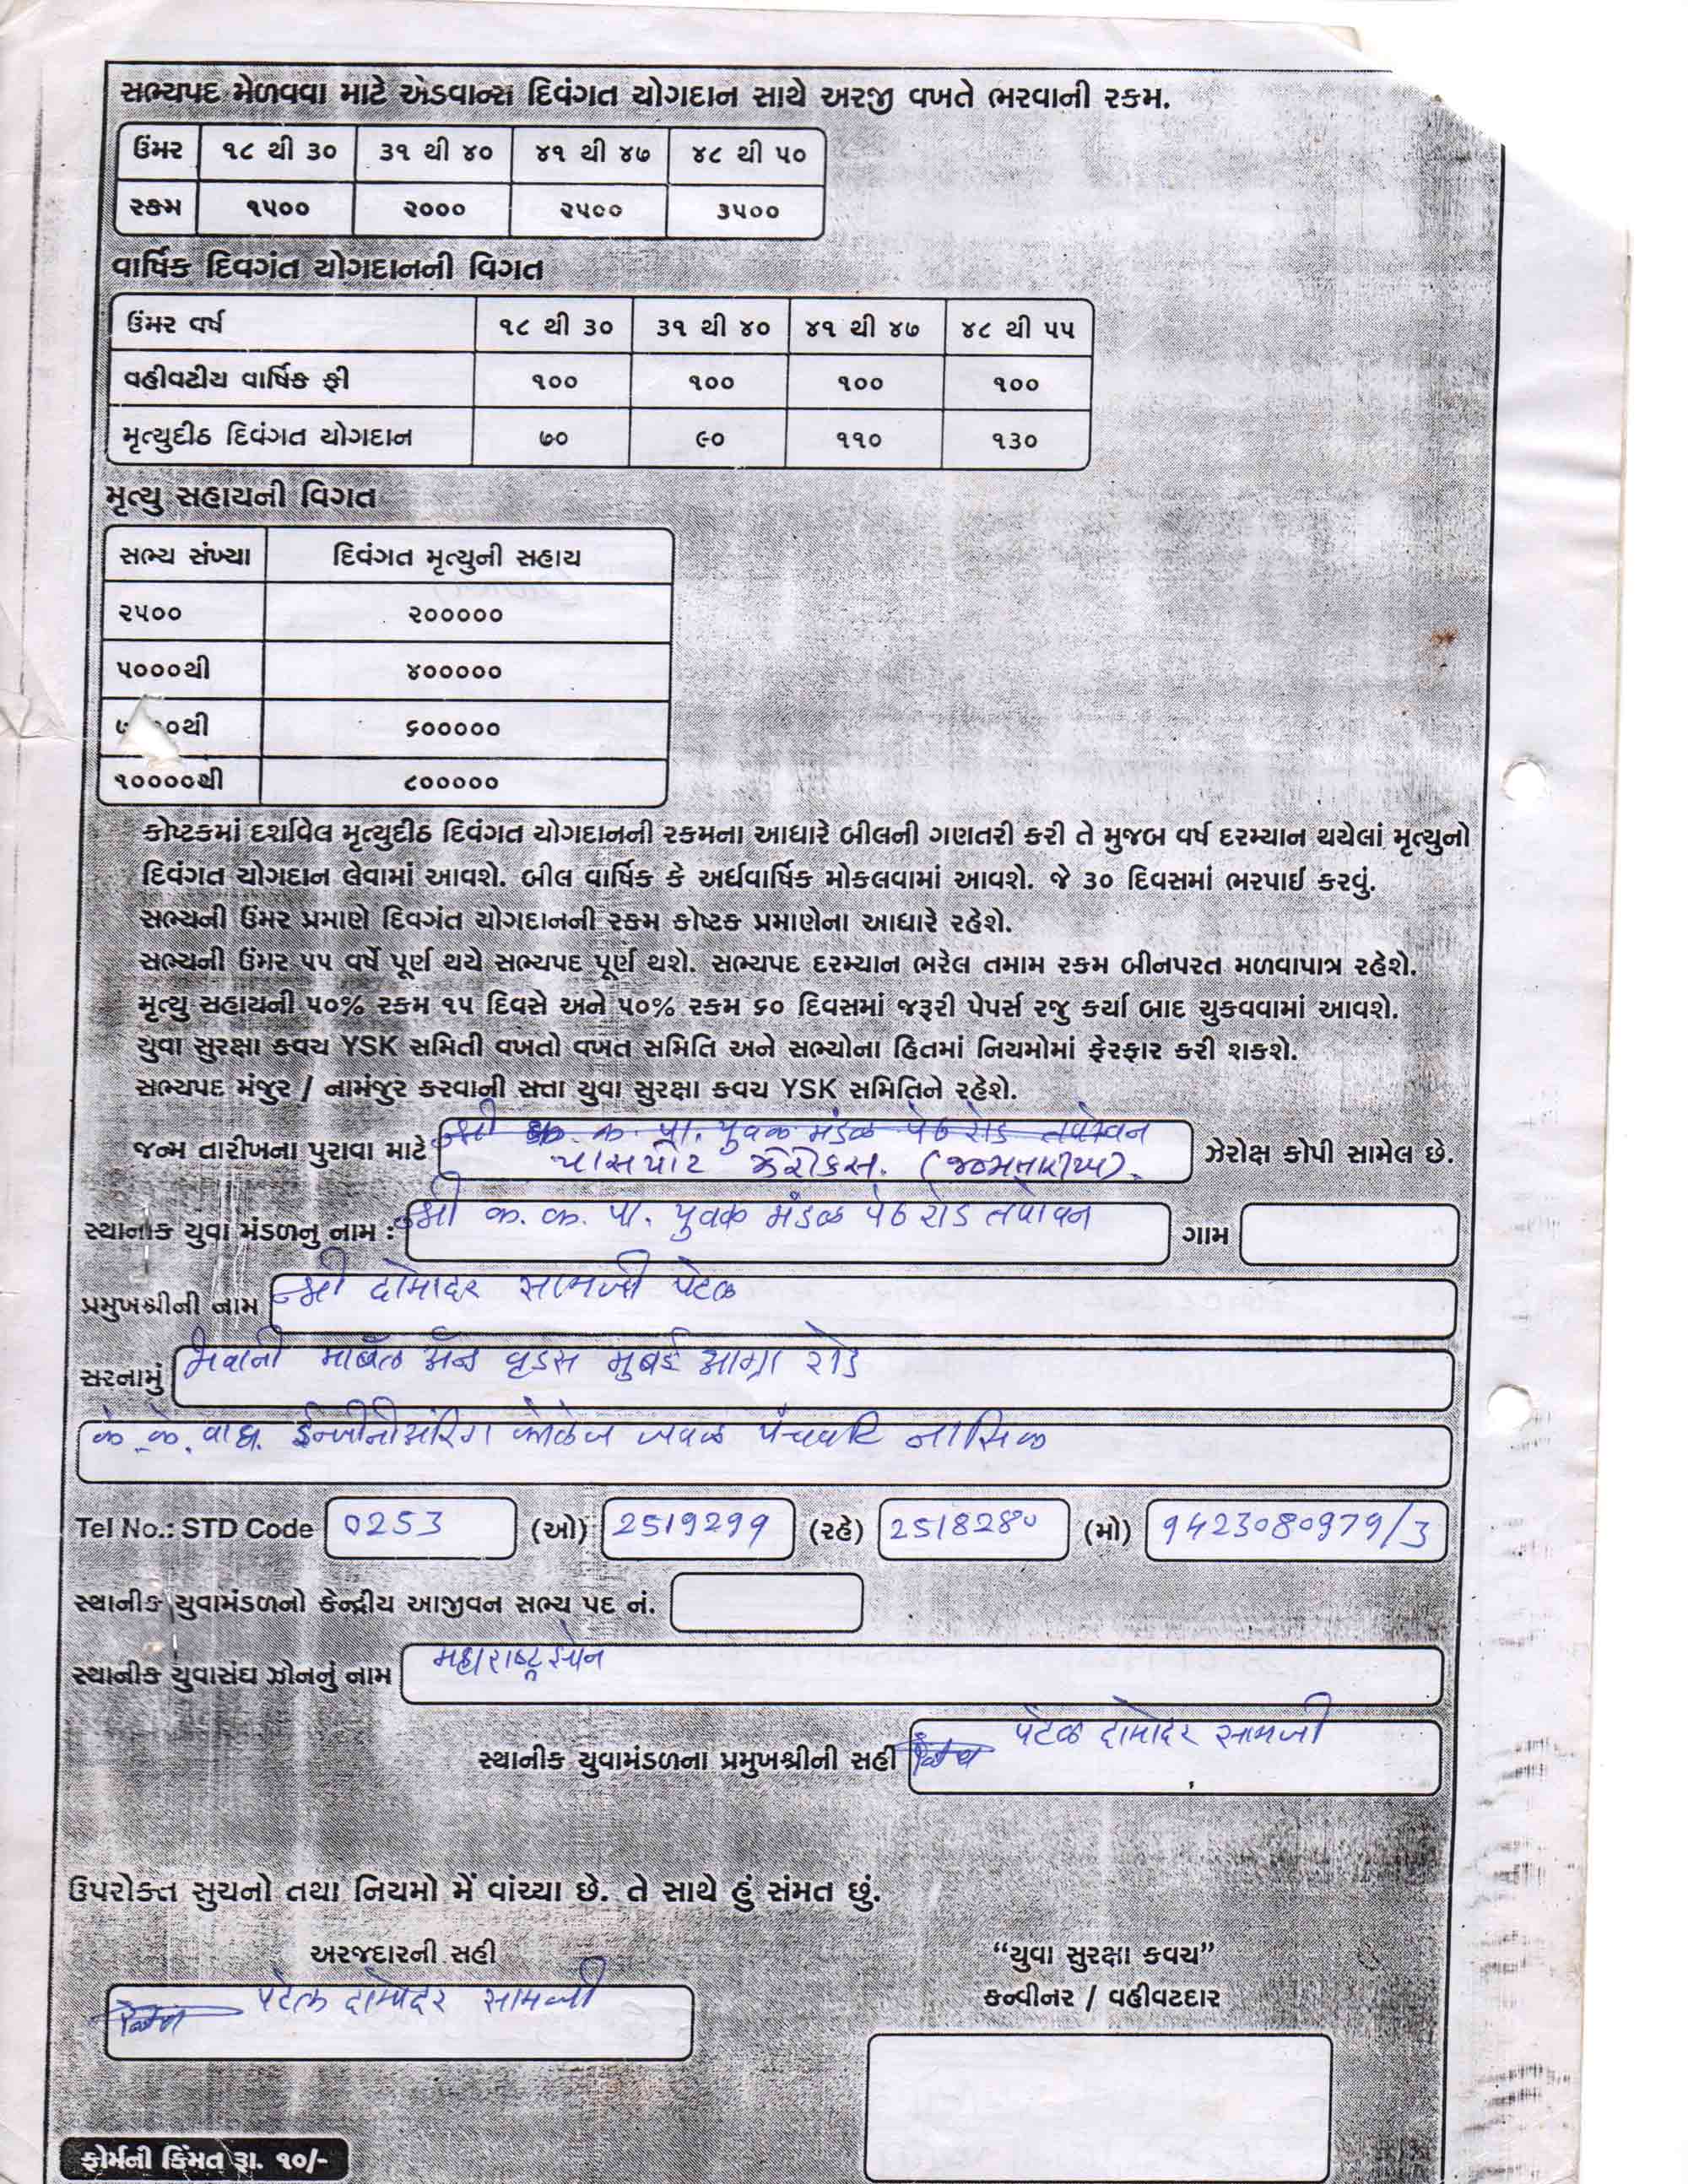 સભ્યપદ મેળવવા માટે એડવાન્સ દિવંગત યોગદાન સાથે અરજી વખતે ભરવાની રકમ.
ઉંમર ૧૮ થી ૩૦ ૩૧ થી ૪૦ ૪૧ થી ૪૭ ૪૮ થી ૫૦
રકમ ૧૫૦૦ ૨૦૦૦ ૨૫૦૦ ૩૫૦૦
વાર્ષિક દિવગંત યોગદાનની વિગત
ઉંમર વર્ષ ૧૮ થી ૩૦ ૩૧ થી ૪૦ ૪૧ થી ૪૭ ૪૮ થી ૫૫
વહીવટીય વાર્ષિક ફી ૧૦૦ ૧૦૦ ૧૦૦ ૧૦૦
મૃત્યુદીઠ દિવંગત યોગદાન ૭૦ ૯૦ ૧૧૦ ૧૩૦
મૃત્યુ સહાયની વિગત
સભ્ય સંખ્યા દિવંગત મૃત્યુની સહાય
૨૫૦૦ ૨૦૦૦૦૦
૫૦૦૦થી ૪૦૦૦૦૦
૬૦૦૦૦૦
૧૦૦૦૦થી ૮૦૦૦૦૦
કોષ્ટકમાં દર્શાવેલ મૃત્યુદીઠ દિવંગત યોગદાનની રકમના આધારે બીલની ગણતરી કરી તે મુજબ વર્ષ દરમ્યાન થયેલાં મૃત્યુનો
દિવંગત યોગદાન લેવામાં આવશે. બીલ વાર્ષિક કે અર્ધવાર્ષિક મોકલવામાં આવશે. જે ૩૦ દિવસમાં ભરપાઈ કરવું.
સભ્યની ઉંમર પ્રમાણે દિવગંત યોગદાનની રકમ કોષ્ટક પ્રમાણેના આધારે રહેશે.
સભ્યની ઉંમર ૫૫ વર્ષે પૂર્ણ થયે સભ્યપદ પૂર્ણ થશે. સભ્યપદ દરમ્યાન ભરેલ તમામ રકમ બીનપરત મળવાપાત્ર રહેશે.
મૃત્યુ સહાયની ૫૦% રકમ ૧૫ દિવસે અને ૫૦% રકમ ૬૦ દિવસમાં જરૂરી પેપર્સ રજુ કર્યા બાદ ચુકવવામાં આવશે.
યુવા સુરક્ષા કવચ YSK સમિતી વખતો વખત સમિતિ અને સભ્યોના હિતમાં નિયમોમાં ફેરફાર કરી શકશે.
સભ્યપદ મંજુર / નામંજુર કરવાની સત્તા યુવા સુરક્ષા કવચ YSK સમિતિને રહેશે.
જન્મ તારીખના પુરાવા માટે પાસપોટ ઝેરોક્સ. (જન્મતારીખ). ઝેરોક્ષ કોપી સામેલ છે.
સ્થાનીક યુવા મંડળનુ નામ : શ્રી ક. ક. પા. યુવક મંડળ પેઠ રોડ તપોવન ગામ
પ્રમુખશ્રીની નામ શ્રી દામોદર સામજી પટેલ
સરનામું ભવાની માર્બલ મુંબઈ આગ્રા રોડ
કે. કે. વાઘ. કોલેજ જવળ પંચવટિ નાસિક
Tel No.: STD Code 0253 (ઓ) 2519299 (રહે) 2518280 (મો) 9423080979/3
સ્થાનીક યુવામંડળનો કેન્દ્રીય આજીવન સભ્ય પદ નં.
સ્થાનીક યુવાસંઘ ઝોનનું નામ મહારાષ્ટ્ર ઝોન
સ્થાનીક યુવામંડળના પ્રમુખશ્રીની સહી પટેળ દામોદર સામજી
ઉપરોક્ત સુચનો તથા નિયમો મેં વાંચ્યા છે. તે સાથે હું સંમત છું.
અરજદારની સહી
પટેલ દામોદર સામજી
“યુવા સુરક્ષા કવચ”
કન્વીનર / વહીવટદાર
ફોર્મની કિંમત રૂા. ૧૦/-